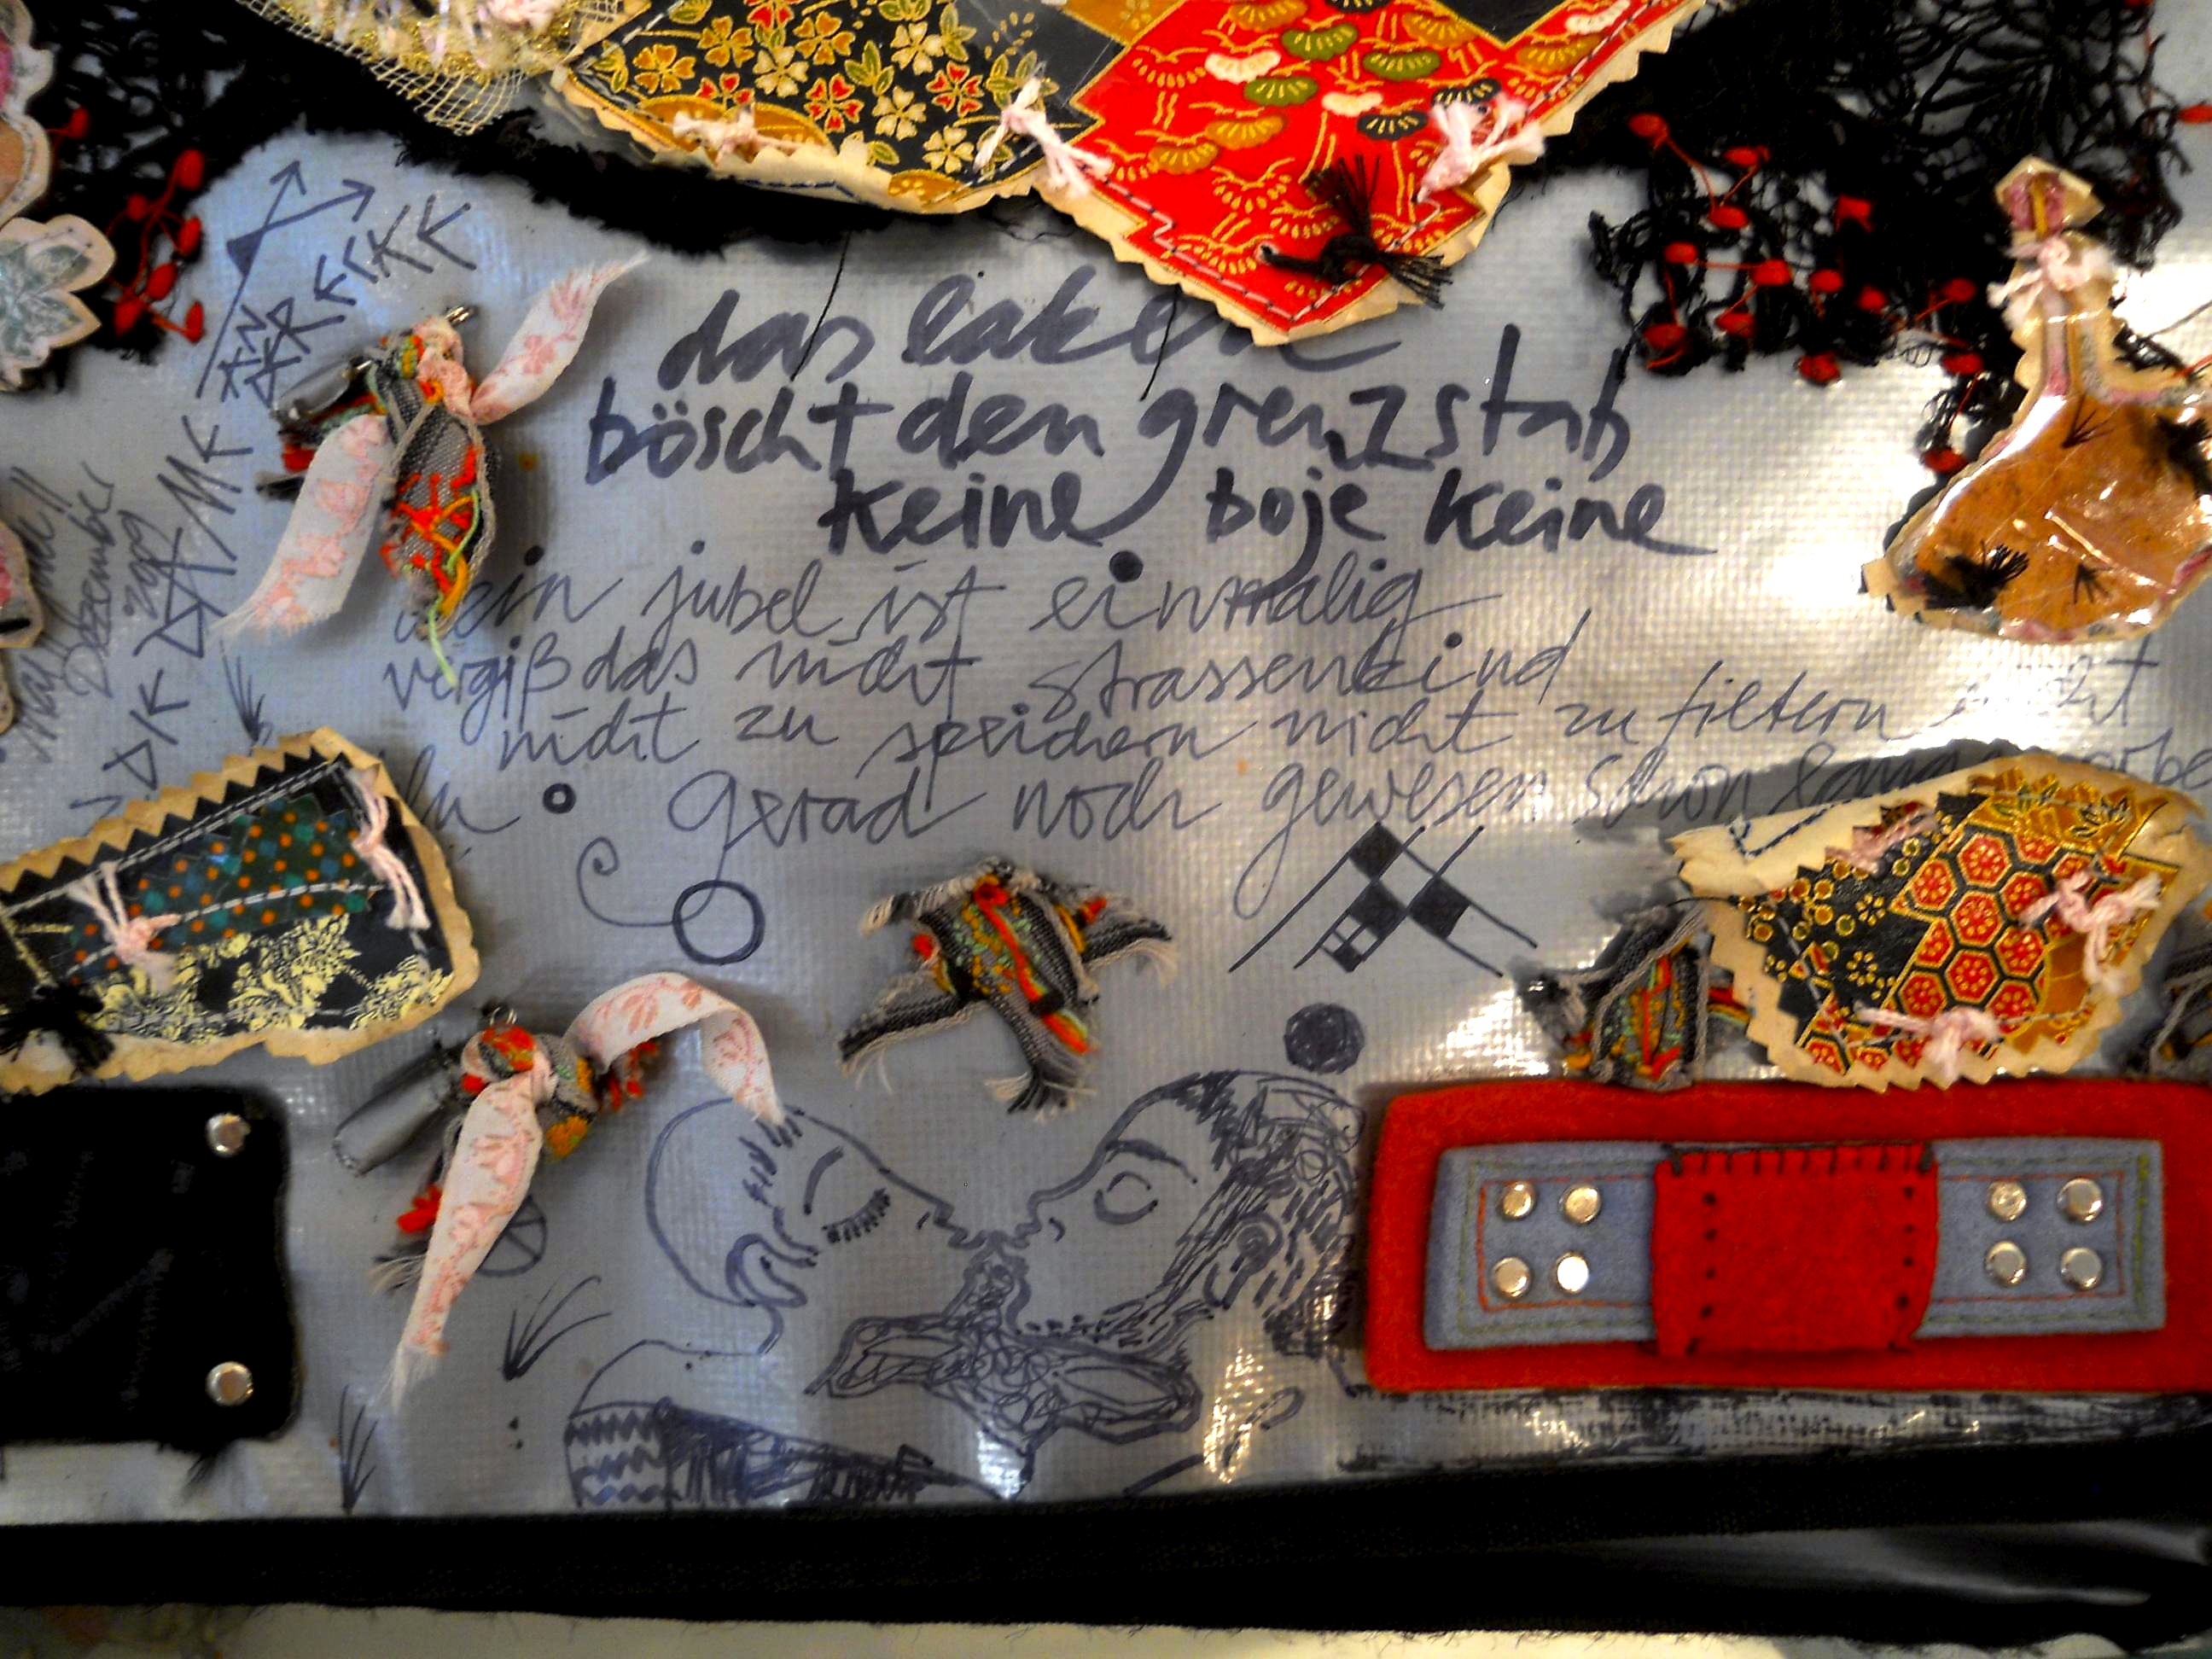 das laken
böscht den grenzstab
keine boje keine
dein jubel ist einmalig
vergiß das nicht strassenkind
nicht zu speichern nicht zu filtern nicht
gerad noch gewesen schon lang
Dezember
2009